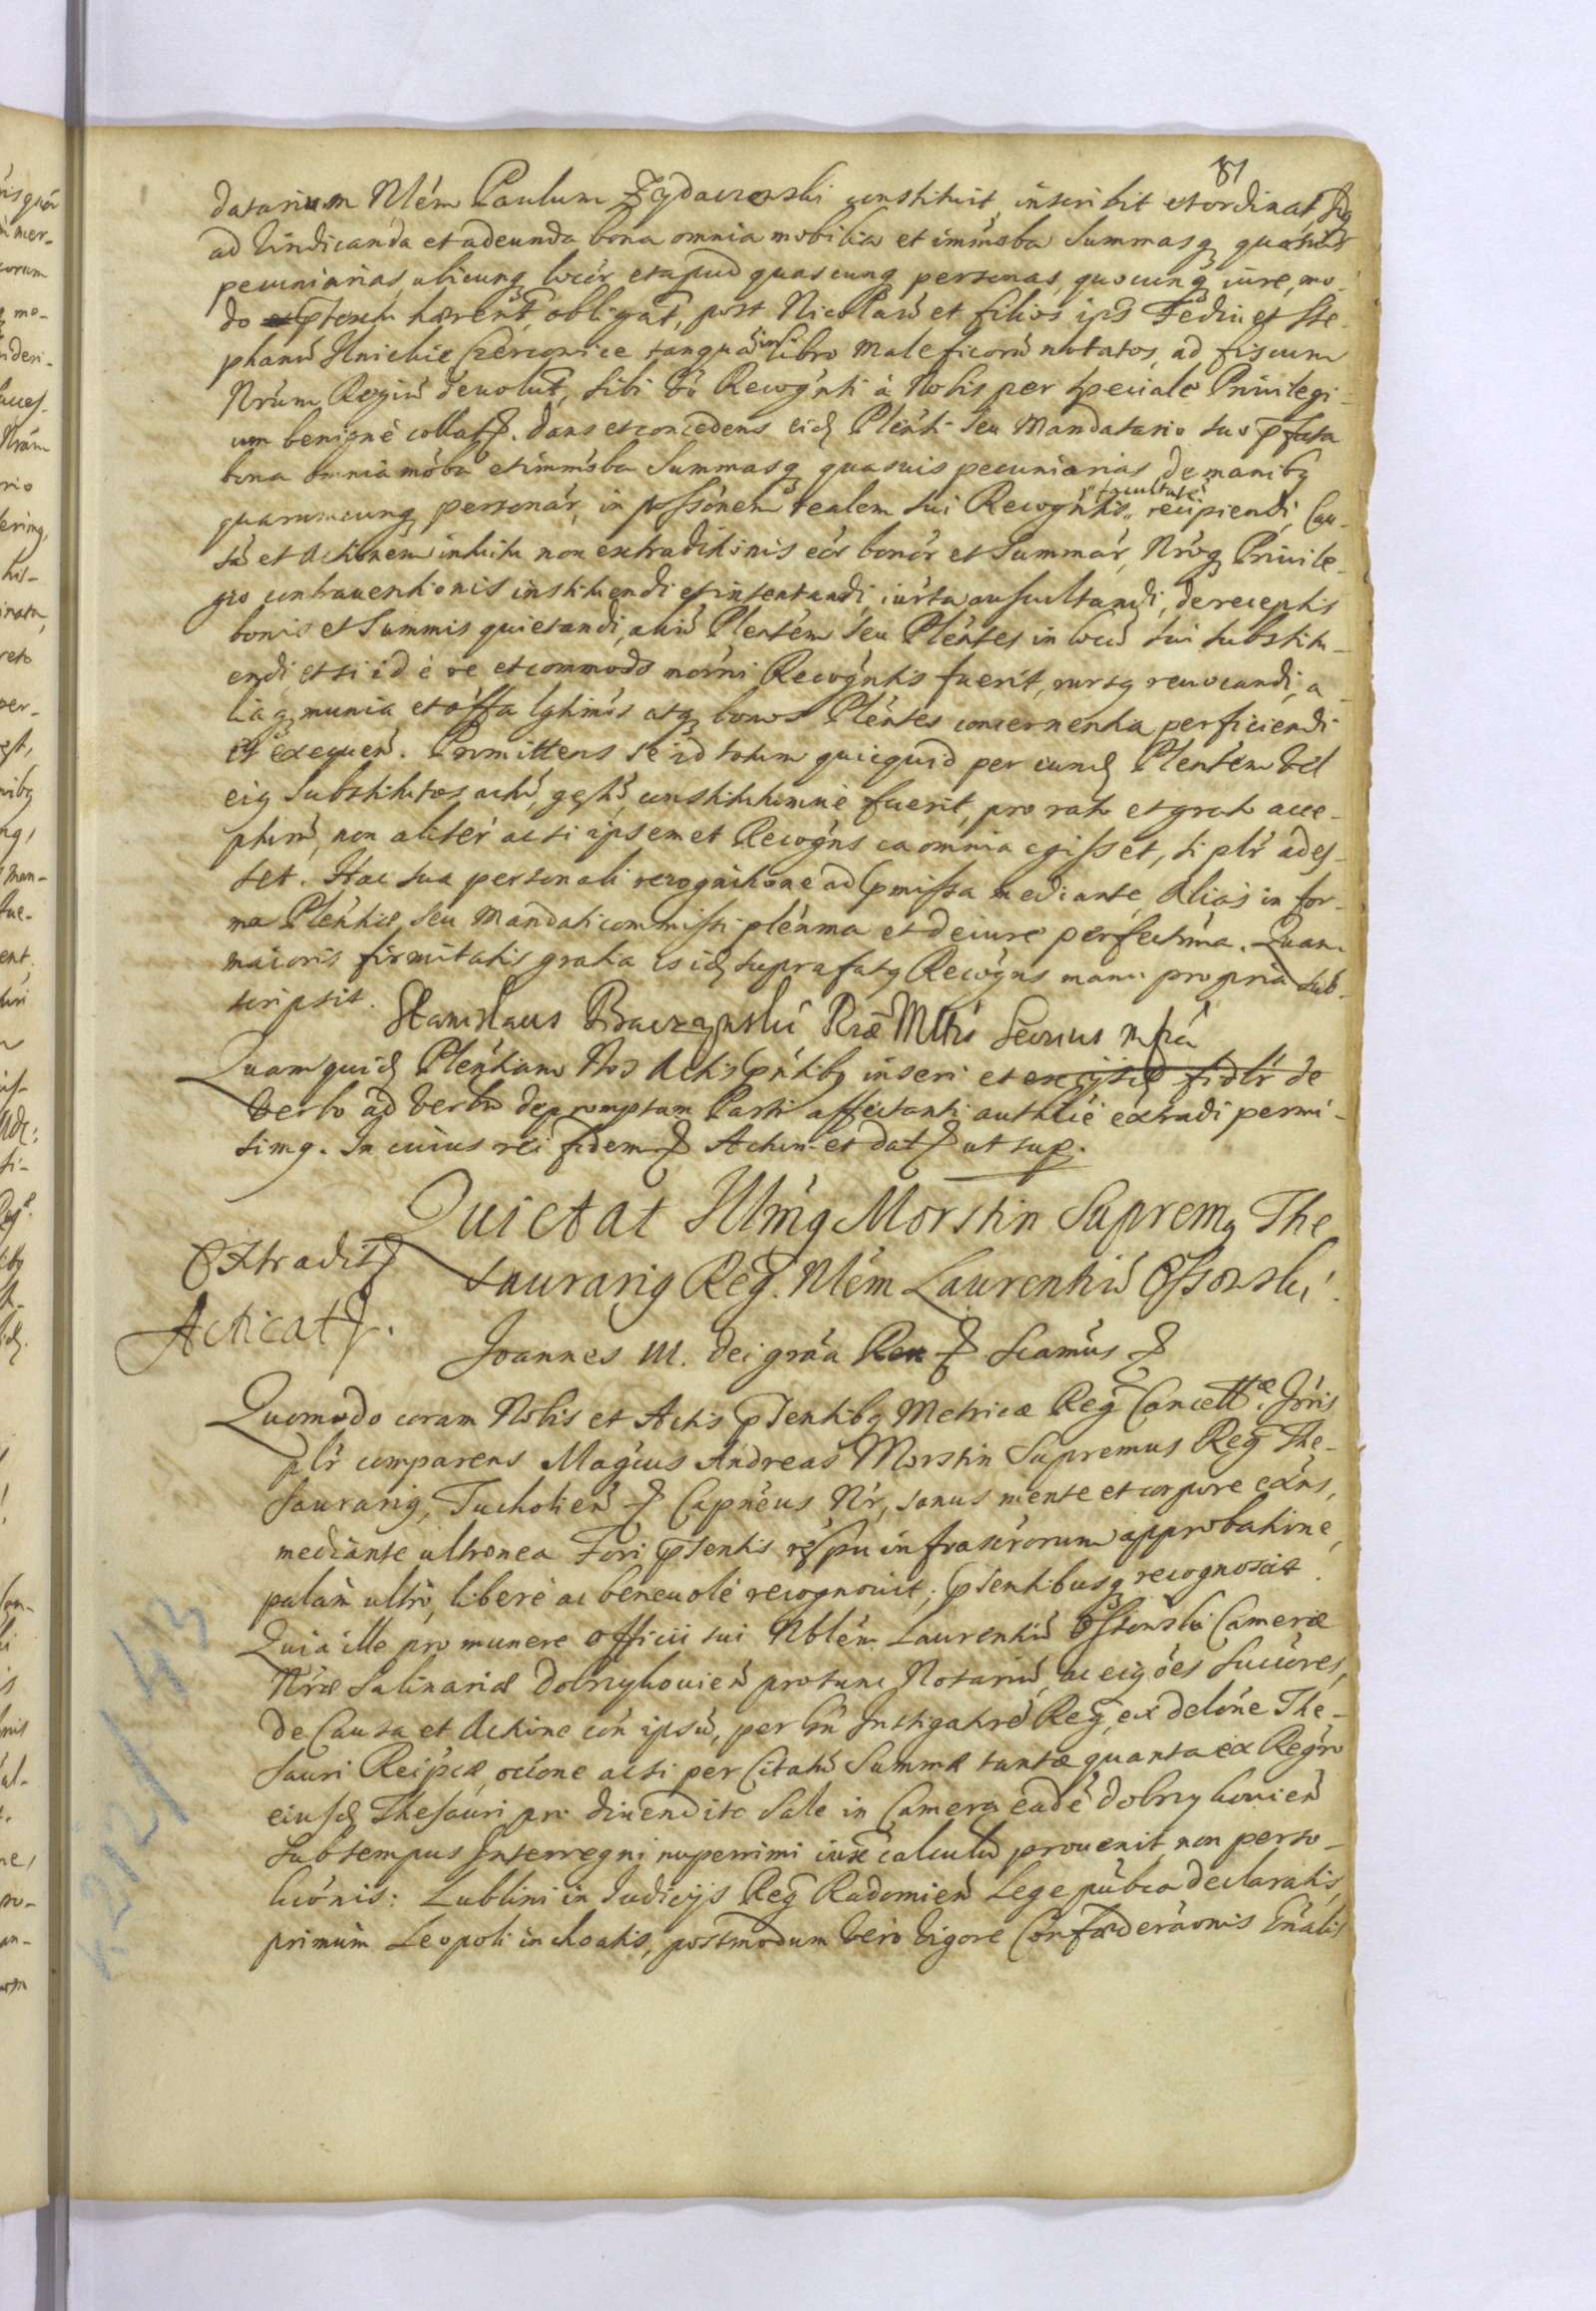 81
datarium Nlém Paulum Zydaczewski constituit, inscribit et ordinat
ad vindicanda et adeunda bona omnia mobilia et imm̃sba Summasq quasvis
pecuniarias, ubicunq locór et apud quascunq personas, quocunq iure, mo-
do hærent, obligat, post Nicolaũ et filios ips Fediu et Ste-
phanũ Ilnickie Czercowice tanquã in libro Maleficorũ notatos, ad fiscum
Nrúm Regiũ devolut, sibi Recogñti à Nobis per speciale Privilegi-
um benigné collat. Dans et concedens eid Pleñti seu Mandatario suo p̃fata
bona omnia móba et imm̃sba Summasq quasvis pecuniarias de manibq
quarumcunq personár, in possónem realem sui Recogñtis facultatẽ recipiendi, Cau-
sã et Actionem intuitu non extraditionis eór bonór et Summár, Nróq Privile-
gio contraventionis instituendi et intentandi, iurta auscultandi, de receptis
bonis et Summis quietandi, aliũ Plentém seu Pléntes in locũ sui substitu-
endi et si id è re et commodo Recogñtis fuerit, rursq revocandi, a-
liaq munia et óffa lgtimis atq bonos Pléntes concernentia perficiendi
et exequeñ. Promittens se id totum quicquid per eund Plentém vel
eiq Substitutos actũ, gestũ, constitutumvè fuerit, pro rato et grato acce-
pturũ, non alitér ac si ipsemet Recogñs ea omnia egisset, si plr ades-
set. Hac sua personali recognitione ad p̃missa mediante, Alias in for-
ma Pléntiæ, seu Mandati commissi plénma et de iure perfectima. Quam
maioris firmitatis gratia is id suprafatq Recogñs manu propria sub-
scripsit.
Stanislaus Braczynski Ræ Mttis Secrius mpá
Quam quid Pléntiam Nos Actis p̃ntibq inseri et ex ijsd fidlr de
verbo ad verbũ depromptam Parti affectanti authcè extradi permi-
simq. In cuius rei fidem Actum et dat ut sup.
Quietat Illmq Morstin Supremq The
saurariq Reg. Nlém Laurentiũ Ossowski.
Extradit
Acticat.
Joannes III. Dei gráa Rex Scamús
Quomodo coram Nobis et Actis p̃sentibq Metricæ Reg Cancellæ. Jóris
plr comparens Magcus Andreas Morstin Supremus Reg The-
saurariq, Tucholień Capnéus Nr, sanus mente et corpore exñs,
mediante ultronea Fori p̃sentis respu infrascrorum approbatione,
palàm ultrò, liberè ac benevolè recognovit, p̃sentibusq recognoscit.
Quia ille pro munere officii sui Nblém Laurentiũ Ossowski Cameræ
Nræ Salinariæ Dobrzykovień protunc Notariũ, ac eiq óes succóres,
de Causa et Actione cón ipsũ, per Gñ Instigatoré Reg, ex delóne The-
sauri Reipcæ, ocióne ac si per Citatũ Summæ tantæ quanta ex Regro
eiusd Thesauri pro divendito Sale in Camera eadẽ Dobrzykovień
sub tempus Interregni nuperrimi iuxt calculũ provenit, non perso-
lutiónis: Lublini in Judicijs Reg Radomień Lege públca declaratis,
primùm Leopoli inchoatis, postmodum verò vigore Confœderaónis Gñalis